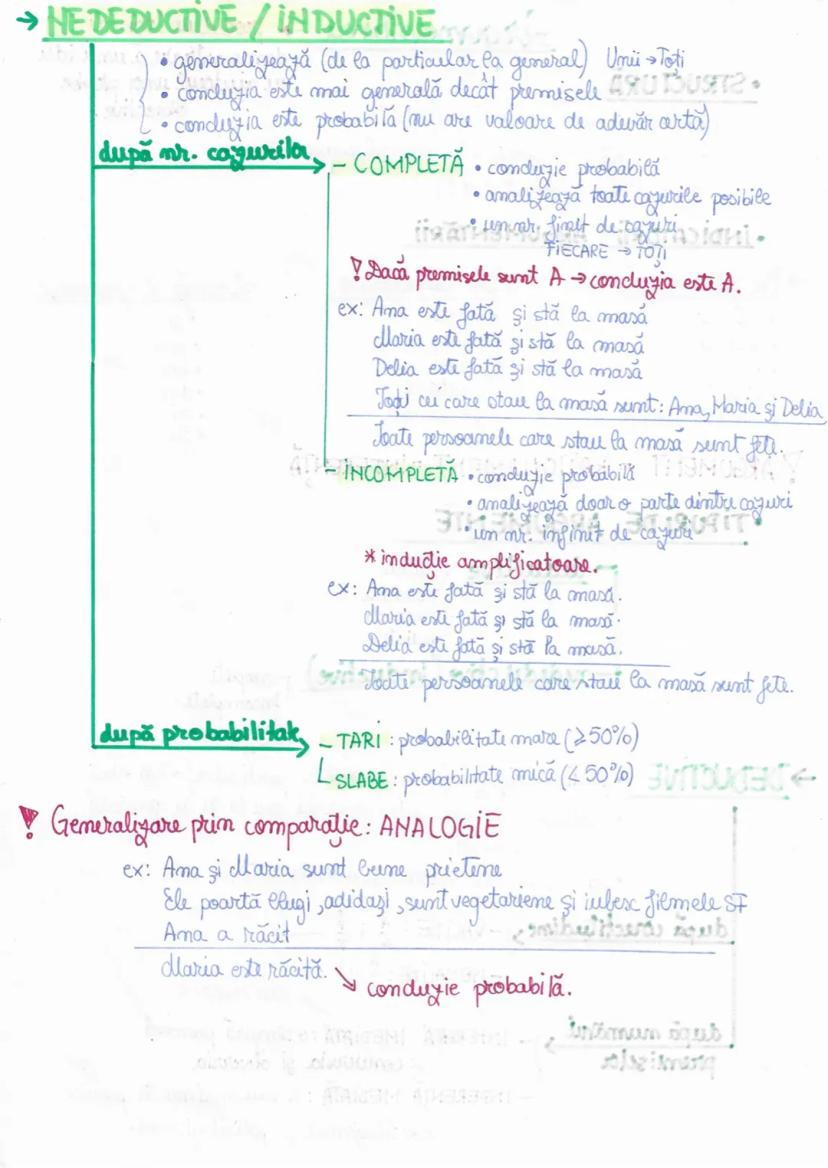 → NEDEDUCTIVE / INDUCTIVE
• generalizează (de la particular la general) Unii → Toți
• concluzia este mai generală decât premisele
• concluzia este probabilă (nu are valoare de adevăr certă)
după nr. cazurilor
- COMPLETĂ • concluzie probabilă
• analizează toate cazurile posibile
• un nr. finit de cazuri
FIECARE → TOȚI
! Dacă premisele sunt A → concluzia este A.
ex: Ana este fată și stă la masă
Maria este fată și stă la masă
Delia este fată și stă la masă
Toți cei care stau la masă sunt: Ana, Maria și Delia
Toate persoanele care stau la masă sunt fete.
- INCOMPLETĂ • concluzie probabilă
• analizează doar o parte dintre cazuri
• un nr. infinit de cazuri
* inducție amplificatoare.
ex: Ana este fată și stă la masă.
Maria este fată și stă la masă.
Delia este fată și stă la masă.
Toate persoanele care stau la masă sunt fete.
după probabilitate
- TARI : probabilitate mare (≥50%)
SLABE : probabilitate mică (≤50%)
! Generalizare prin comparație: ANALOGIE
ex: Ana și Maria sunt bune prietene
Ele poartă blugi, adidași, sunt vegetariene și iubesc filmele SF
Ana a răcit
Maria este răcită.
↘ concluzie probabilă.